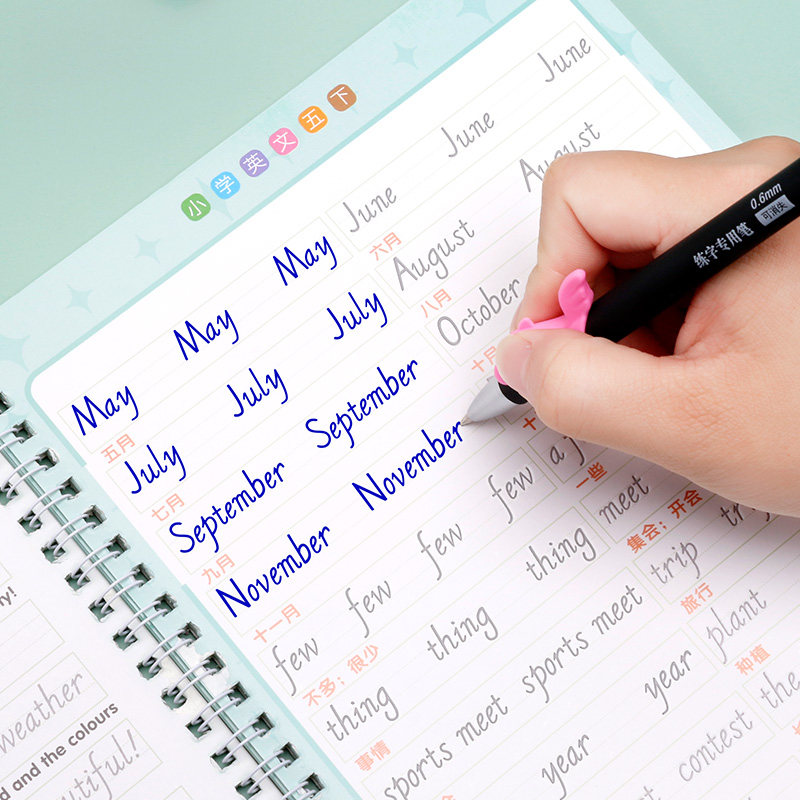 小学英文五下
May May May
五月
June June June
六月
July July July
七月
August August
八月
September September
九月
October
十月
November November
十一月
few few few few
不多；很少
a f
一些
thing thing thing
事情
meet
集会；开会
sports meet sports meet
trip
旅行
year year
plant
种植
contest
the
weather
d and the colours
utiful!
练字专用笔
0.6mm
可消失